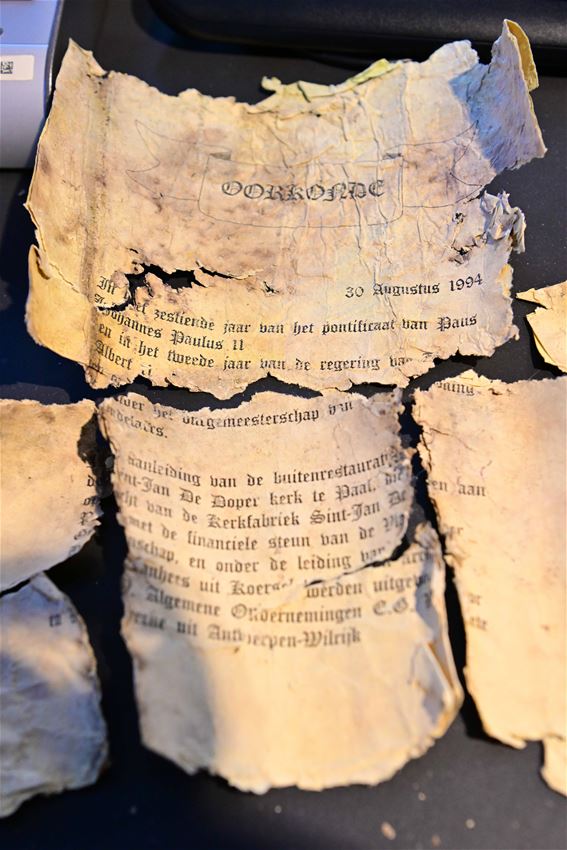 OORKONDE
30 Augustus 1994
In het zestiende jaar van het pontificaat van Paus
Johannes Paulus II
en in het tweede jaar van de regering van
Albert II
het burgemeesterschap van
aanleiding van de buitenrestaurat
nt-Jan De Doper kerk te Paal, die
en aan
cht van de Kerkfabriek Sint-Jan De
met de financiele steun van de
schap, en onder de leiding van
uit Koersel werden uitgev
Algemene Ondernemingen E.G.
uit Antwerpen-Wilrijk